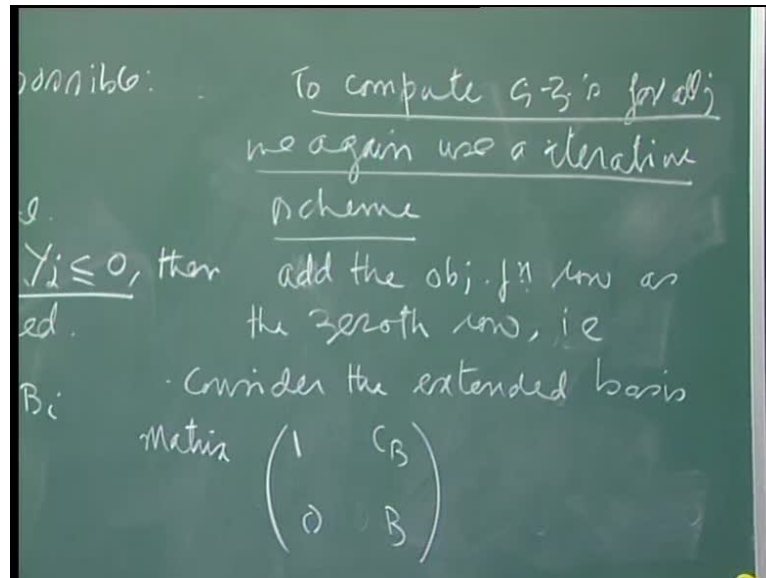 possible: To compute Cj-Zj's for all j
we again use a iterative
scheme
e.
Yj ≤ 0, then add the obj. fn row as
ed. the zeroth row, i e
Bi Consider the extended basis
Matrix ( 1 CB
0 B )